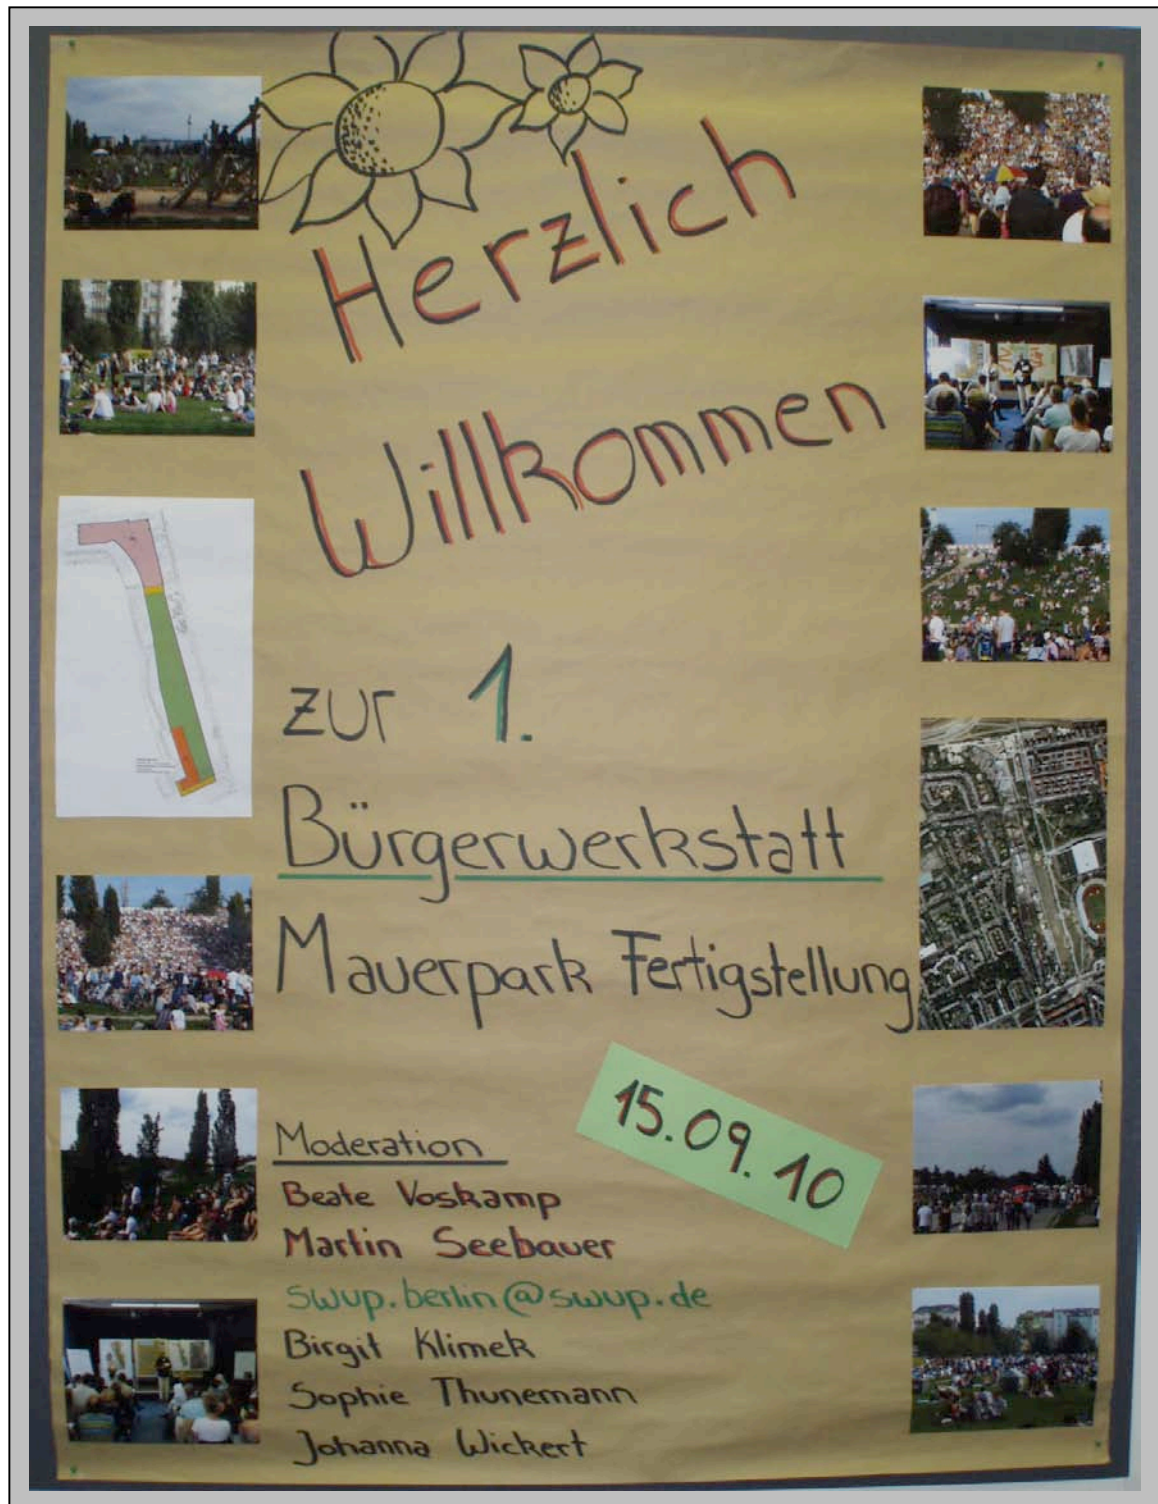 Herzlich
Willkommen
zur 1.
Bürgerwerkstatt
Mauerpark Fertigstellung
15.09.10
Moderation
Beate Voskamp
Martin Seebauer
swup.berlin@swup.de
Birgit Klimek
Sophie Thunemann
Johanna Wickert